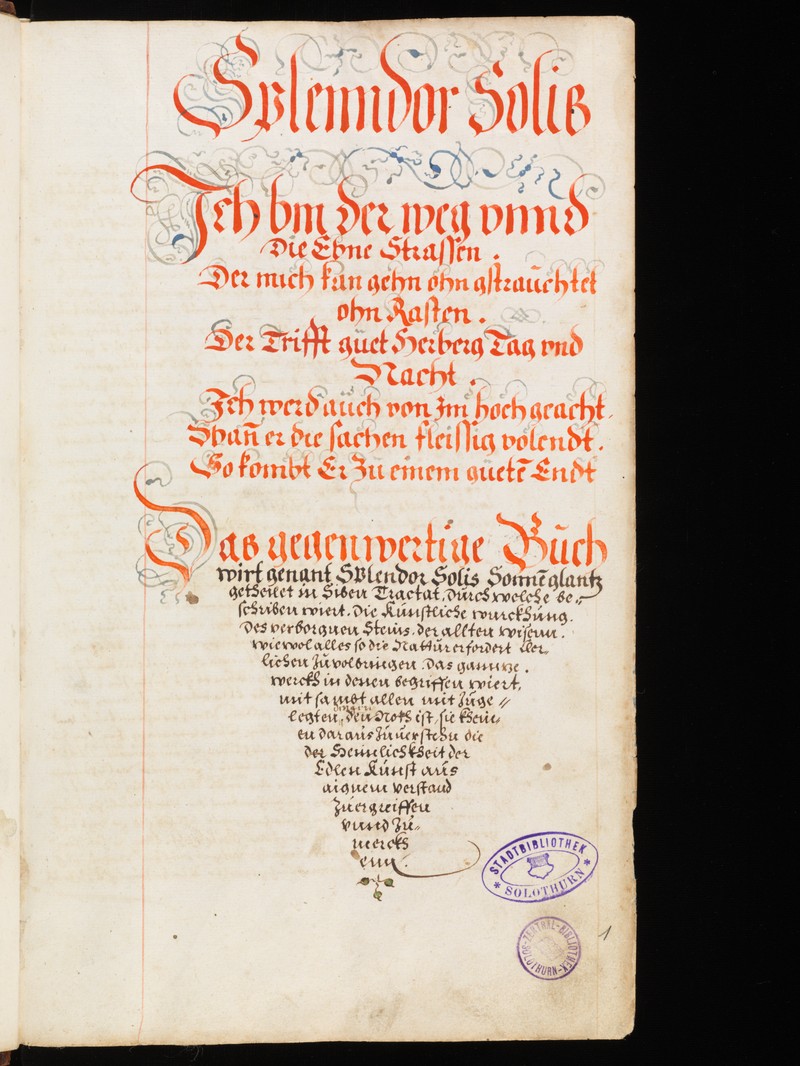 Splenndor Solis
Ich bin der weg vnnd
Die Ebne Strassen .
Der mich kan gehn ohn gstrauchtet
ohn Rasten .
Der Trifft guet Herberg Tag vnd
Nacht .
Ich werd auch von Im hoch geacht.
Wan̄ er die sachen fleissig volendt .
So kombt Er Zu einem guetē Endt
Das gegenwertige Buch
wirt genant Splendor Solis Sonnēglantz
getheilet in Siben Tractat, durch welche be=
schriben wiert. Die Künstliche würckhung.
Des verborgnen Steins. der allten wisenn.
wiewol alles so die Nattur erfordert
lichen zuvolbringen. das ganntze.
werckh in denen begriffen wiert.
mit sambt allen mit zuge=
legten dingen, den Noth ist, sie khein=
en daraus zuuerstehn die
der Heimlichkheit der
Edlen Kunst aus
aignem verstand
zuergreiffen
vnnd zu=
merckh
enn.
STADTBIBLIOTHEK
* SOLOTHURN *
ZENTRAL-BIBLIOTHEK
SOLOTHURN
1